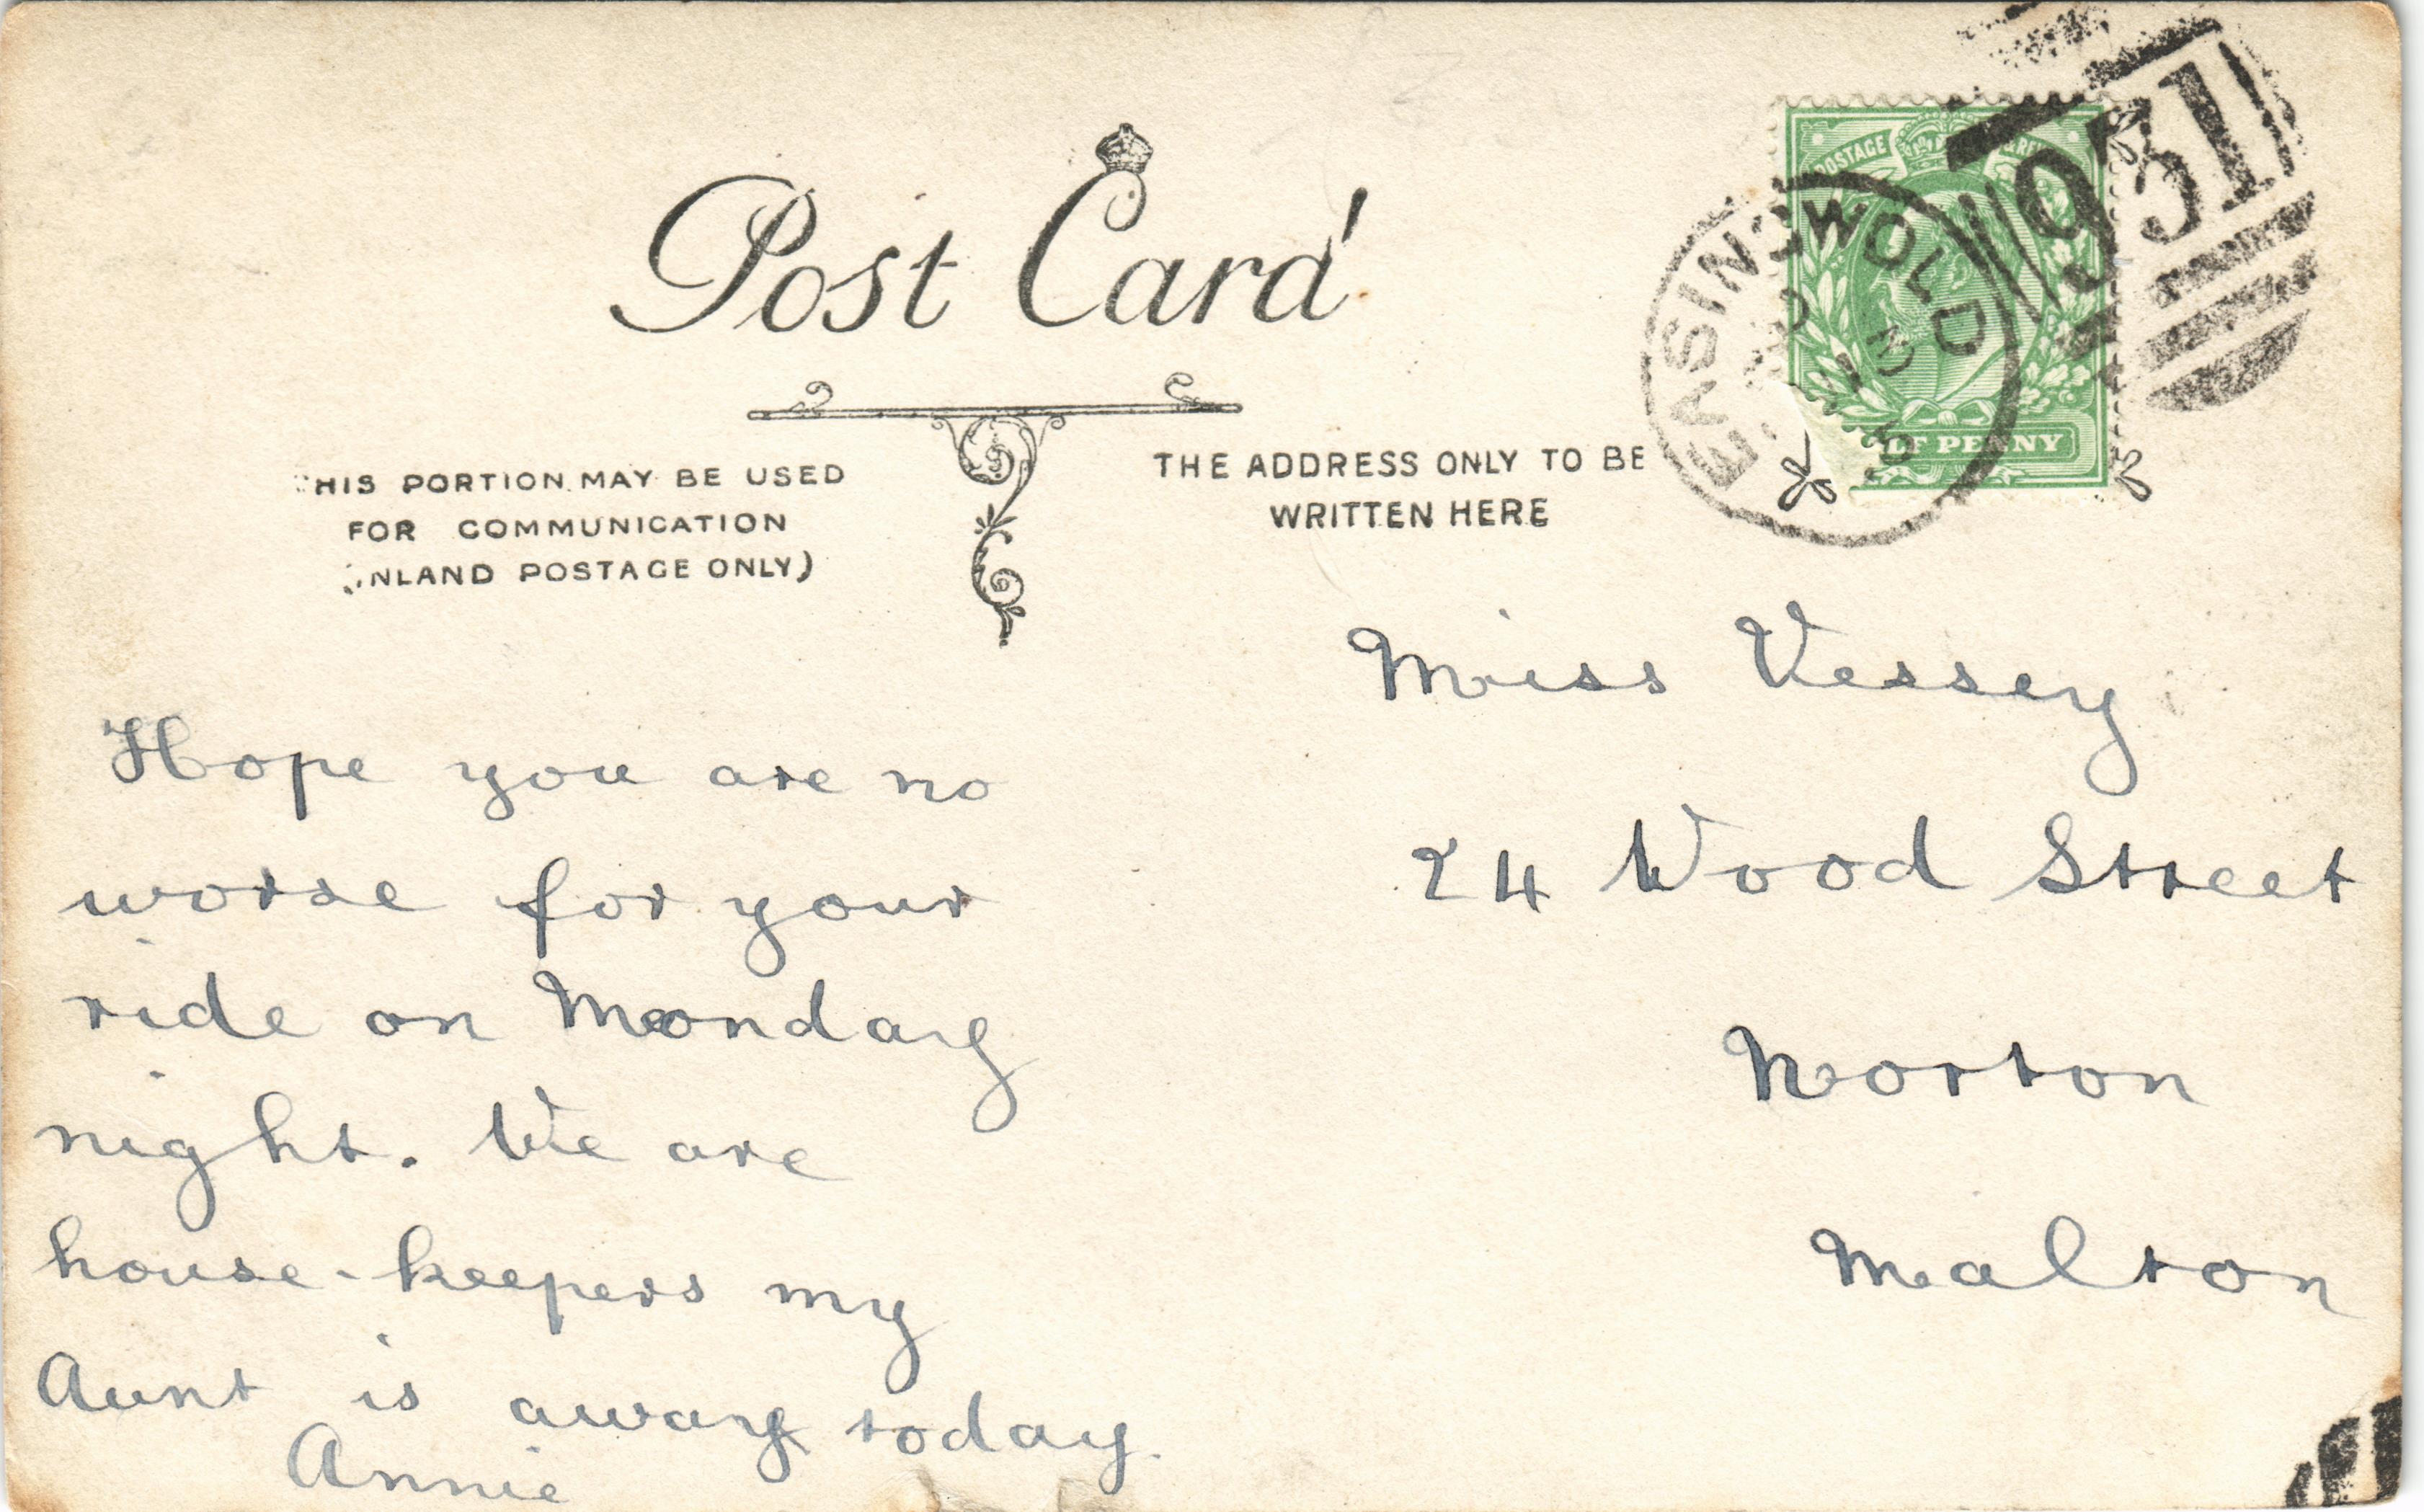 Post Card
HIS PORTION MAY BE USED
FOR COMMUNICATION
NLAND POSTAGE ONLY)
THE ADDRESS ONLY TO BE
WRITTEN HERE
POSTAGE
LF PENNY
EASINGWOLD
931
Hope you are no
worse for your
ride on Monday
night. We are
house-keepers my
Aunt is away today.
Annie
Miss Vessey
24 Wood Street
Norton
Malton